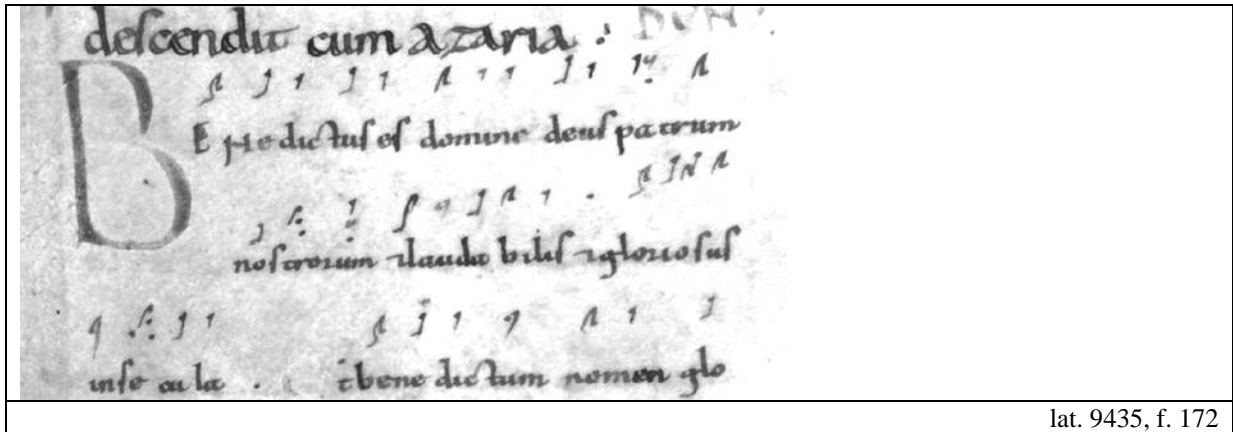 descendit cum azaria :
BENedictus es domine deus patrum
nostrorum &laudabilis &gloriosus
insecula . &benedictum nomen glo
lat. 9435, f. 172